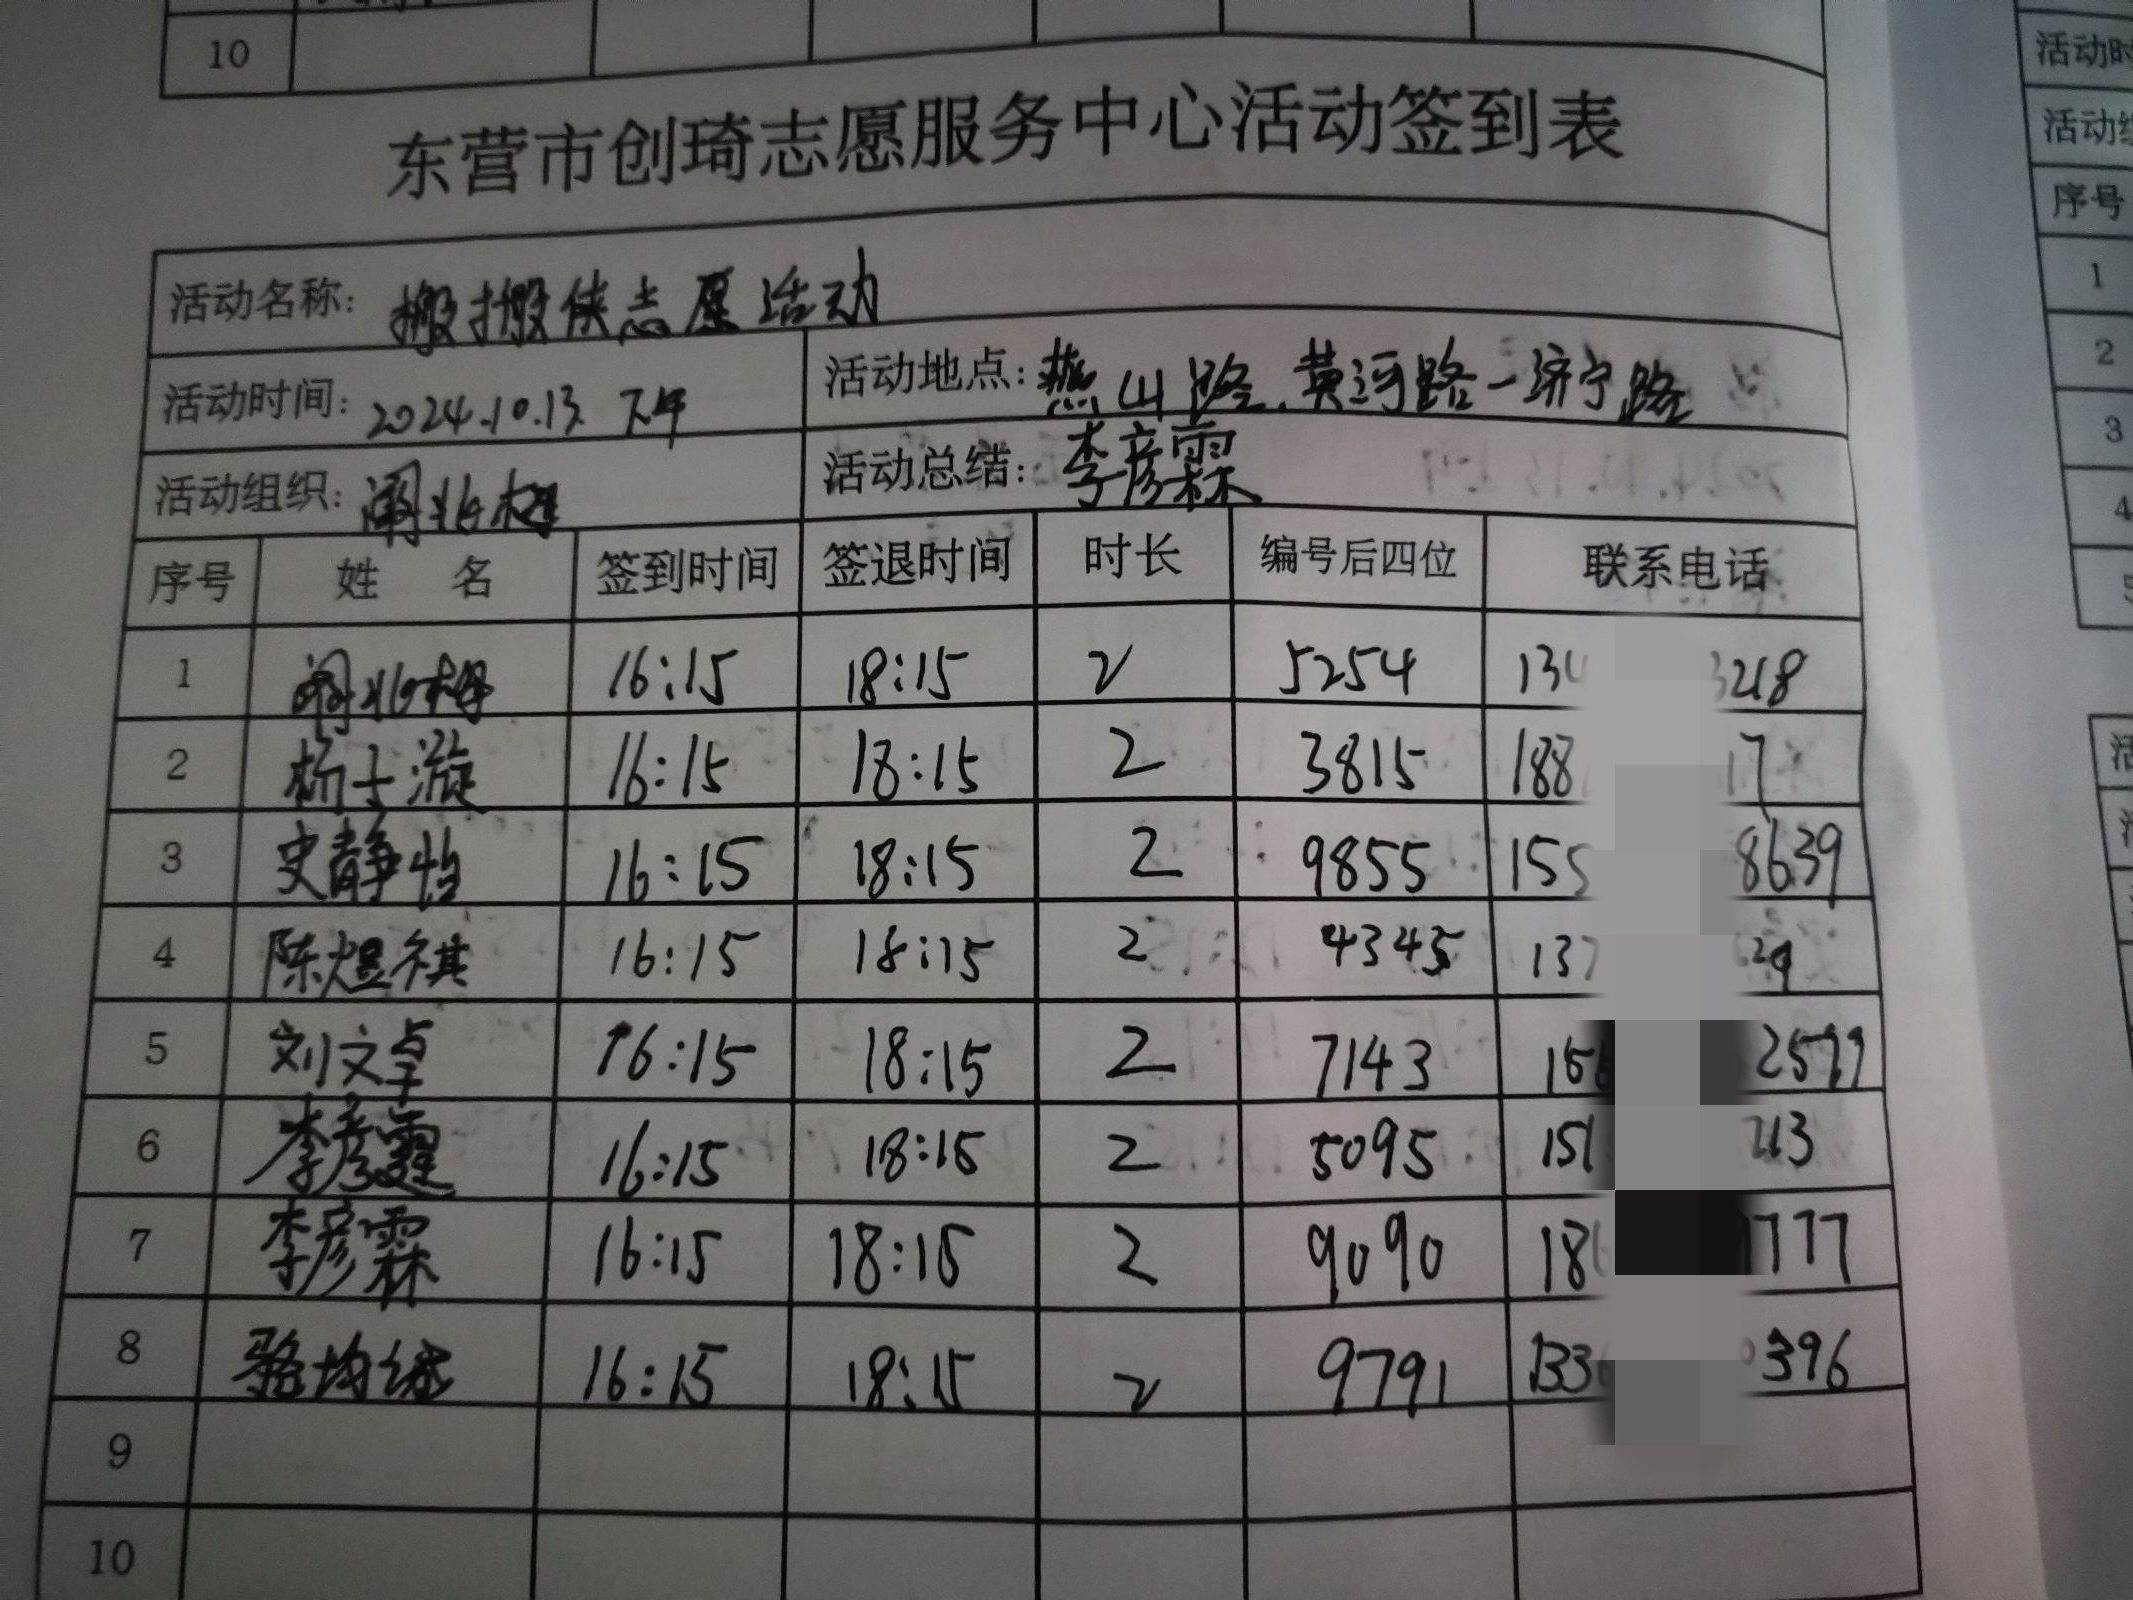 10
东营市创琦志愿服务中心活动签到表
活动名称: 搬搬侠志愿活动
活动时间: 2024.10.13 下午 活动地点: 燕山路、黄河路-济宁路
活动组织: 阚兆梅 活动总结: 李彦霖
序号 姓 名 签到时间 签退时间 时长 编号后四位 联系电话
1 阚兆梅 16:15 18:15 2 5254 134 3218
2 杨士漩 16:15 18:15 2 3815 188 17
3 史静怡 16:15 18:15 2 9855 155 8639
4 陈煜祺 16:15 18:15 2 4345 137 29
5 刘文卓 16:15 18:15 2 7143 156 2577
6 李彦霆 16:15 18:15 2 5095 151 213
7 李彦霖 16:15 18:15 2 9090 186 777
8 骆均 16:15 18:15 2 9791 133 396
9
10
活动时
活动组
序号
1
2
3
4
5
活